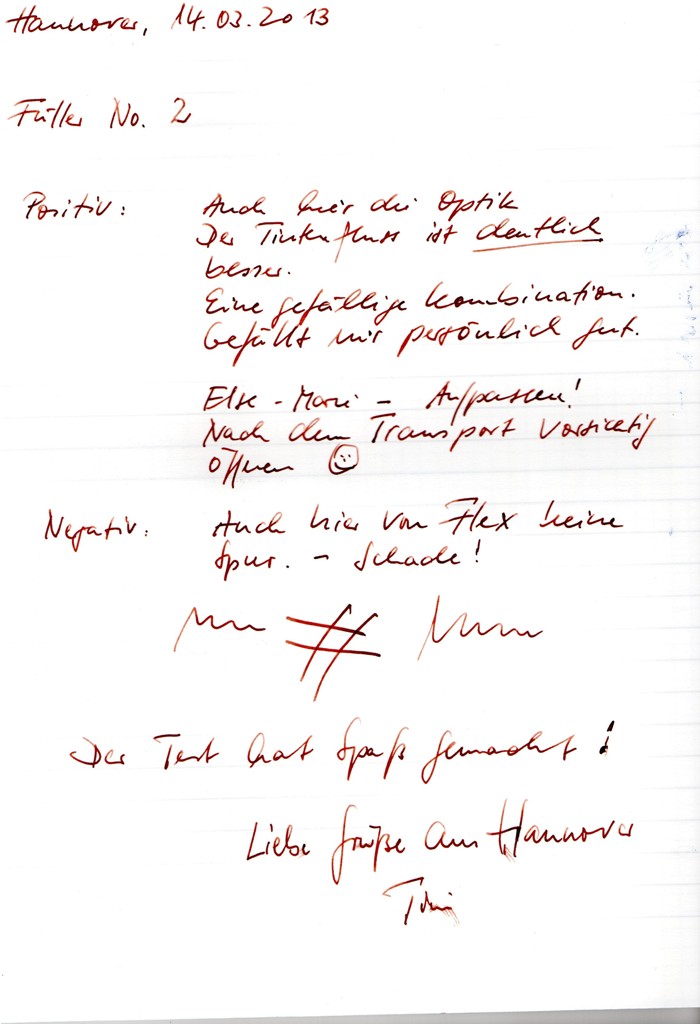 Hannover, 14.03.2013
Füller No. 2
Positiv: Auch hier die Optik
Der Tintenfluss ist deutlich
besser.
Eine gefällige Kombination.
Gefällt mir persönlich gut.
Else-Marie - Aufpassen!
Nach dem Transport vorsichtig
öffnen
Negativ: Auch hier von Flex keine
Spur. - Schade!
Der Test hat Spaß gemacht!
Liebe Grüße aus Hannover